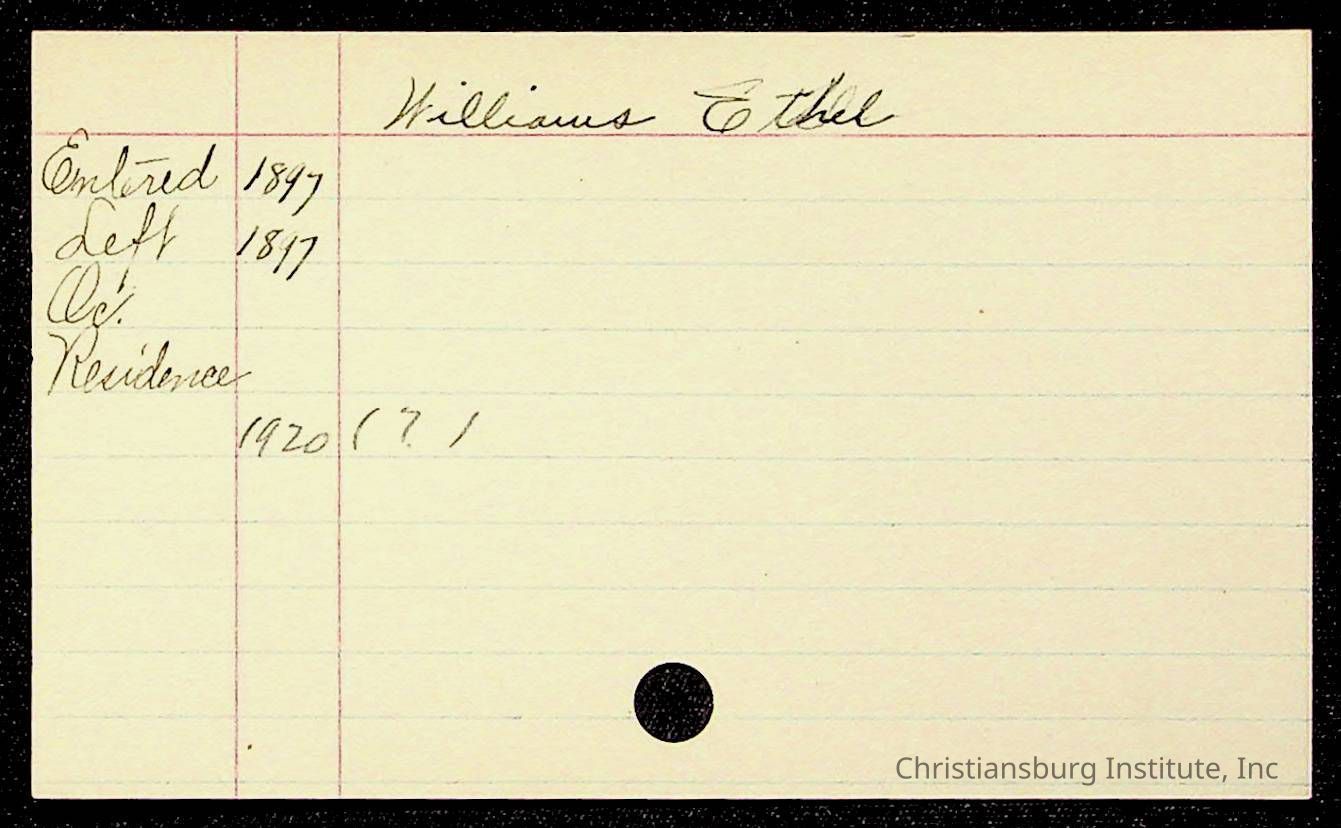 Williams Ethel
Entered 1897
Left 1897
Oc.
Residence
1920 ( ? )
Christiansburg Institute, Inc